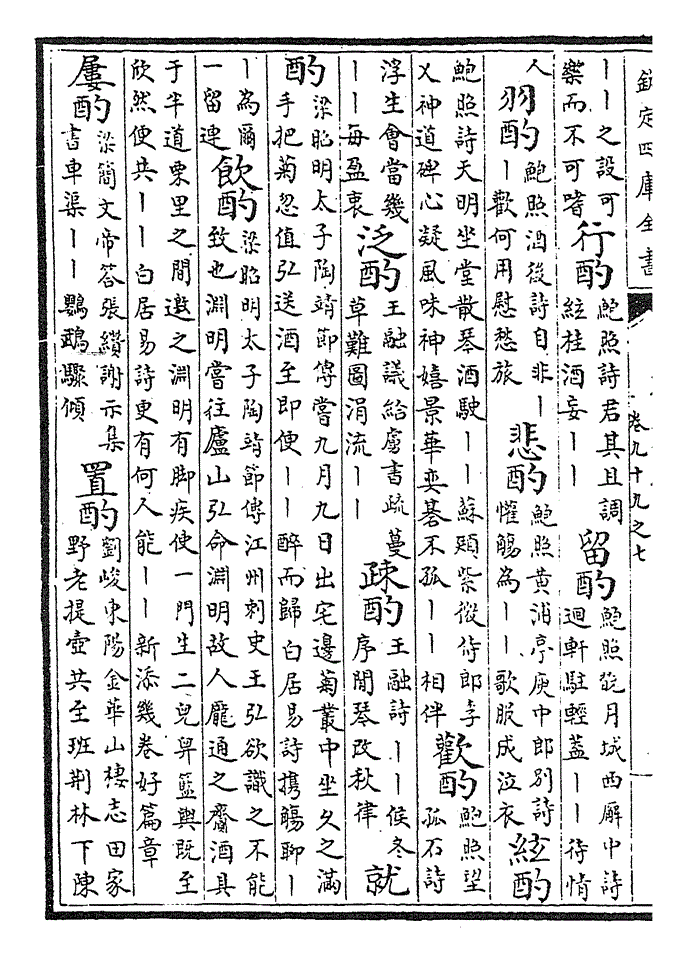 欽定四庫全書
卷九十九之七
丨丨之設可
樂而不可嗜
行酌
鮑照詩君其且調
絃桂酒妄丨丨
留酌
鮑照翫月城西廨中詩
迴軒駐輕蓋丨丨待情
人
羽酌
鮑照酒後詩自非丨
丨歡何用慰愁旅
悲酌
鮑照黄浦亭庾中郎别詩
懽觴為丨丨歌服成泣衣
絃酌
鮑照詩天明坐堂散琴酒駛丨丨蘇頲紫微侍郎李
乂神道碑心凝風味神嬉景華奕棊不孤丨丨相伴
歡酌
鮑照望
孤石詩
浮生會當幾
丨丨每盈衷
泛酌
王融議給虜書疏蔓
草難圖涓流丨丨
疎酌
王融詩丨丨候冬
序閒琴改秋律
就
酌
梁昭明太子陶靖節傳嘗九月九日出宅邊菊叢中坐久之滿
手把菊忽值弘送酒至即使丨丨醉而歸白居易詩攜觴聊丨
丨為爾
一留連
飲酌
梁昭明太子陶靖節傳江州刺史王弘欲識之不能
致也淵明嘗往廬山弘命淵明故人龎通之齎酒具
于半道栗里之間邀之淵明有脚疾使一門生二兒舁籃輿既至
欣然便共丨丨白居易詩更有何人能丨丨新添幾卷好篇章
屢酌
梁簡文帝答張纉謝示集
書車渠丨丨鸚鵡驟傾
置酌
劉峻東陽金華山棲志田家
野老提壺共至班荆林下陳